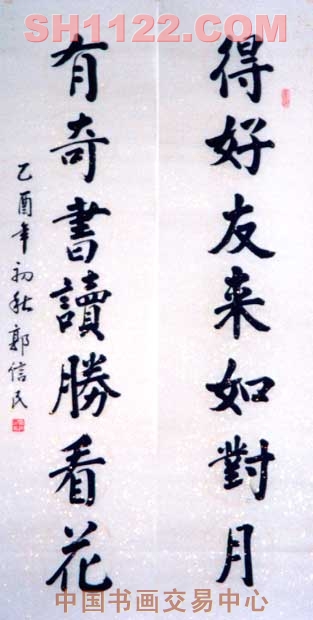 SH1122.COM
得好友来如對月
有奇書讀勝看花
乙酉年初秋郭信民
中国书画交易中心